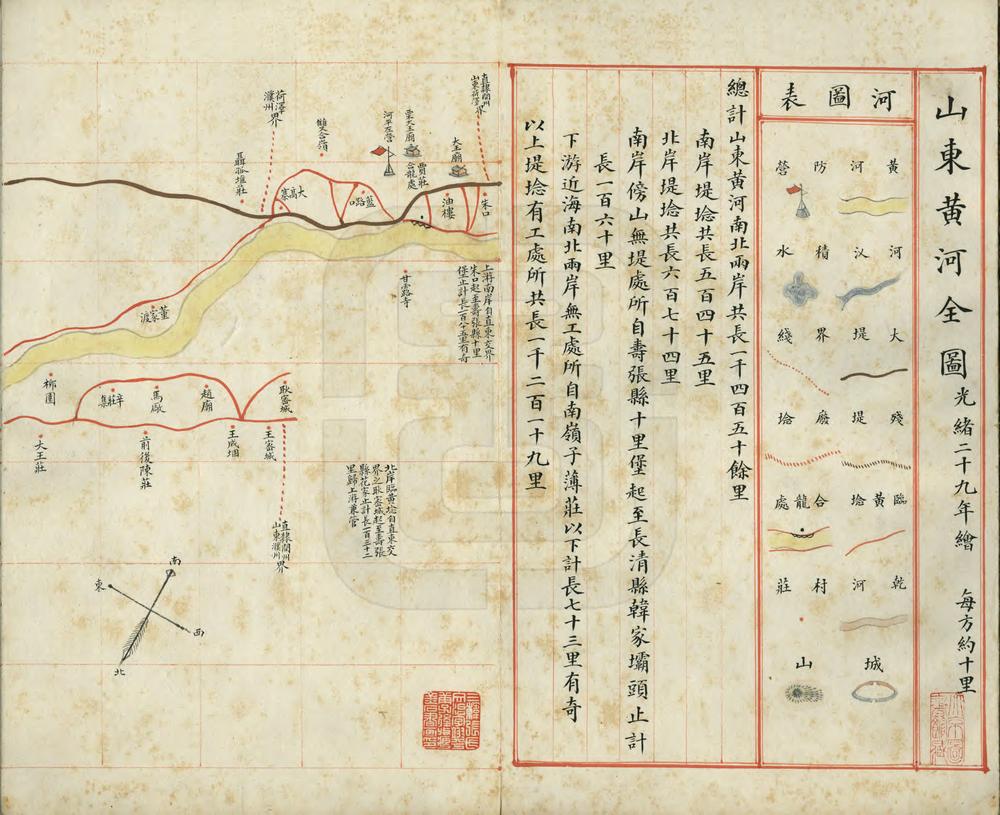 山東黃河全圖
光緒二十九年繪
每方約十里
河圖表
黃河
河防營
河汊
積水
大堤
界綫
殘堤
廢埝
臨黃埝
合龍處
乾河
村莊
城
山
總計山東黃河南北兩岸共長一千四百五十餘里
南岸堤埝共長五百四十五里
北岸堤埝共長六百七十四里
南岸傍山無堤處所自壽張縣十里堡起至長清縣韓家壩頭止計
長一百六十里
下游近海南北兩岸無工處所自南嶺子薄莊以下計長七十三里有奇
以上堤埝有工處所共長一千二百一十九里
直隸開州
山東菏澤界
大王廟
朱口
油樓
賈莊
合龍處
栗大王廟
河平左營
藍路口
雙合嶺
大高寨
菏澤
濮州界
聶孤堆莊
上游南岸自直東交界
朱口起至壽張縣十里
堡止計長一百八十五里有奇
甘露寺
董家渡
耿密城
趙廟
馬廠
辛莊集
柳園
王密城
王成堌
前後陳莊
大王莊
北岸臨黃埝自直東交
界之耿密城起至壽張
縣花家止計長一百三十二
里歸上游兼管
直隸開州
山東濮州界
南
東
西
北